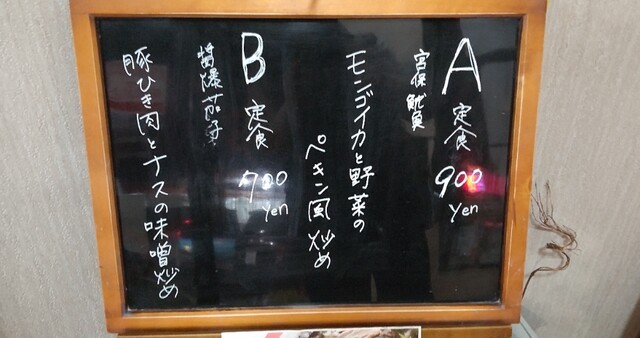 A定食
900
yen
宮保魷魚
モンゴイカと野菜の
ペキン風炒め
B定食
700
yen
醤爆茄子
豚ひき肉とナスの味噌炒め